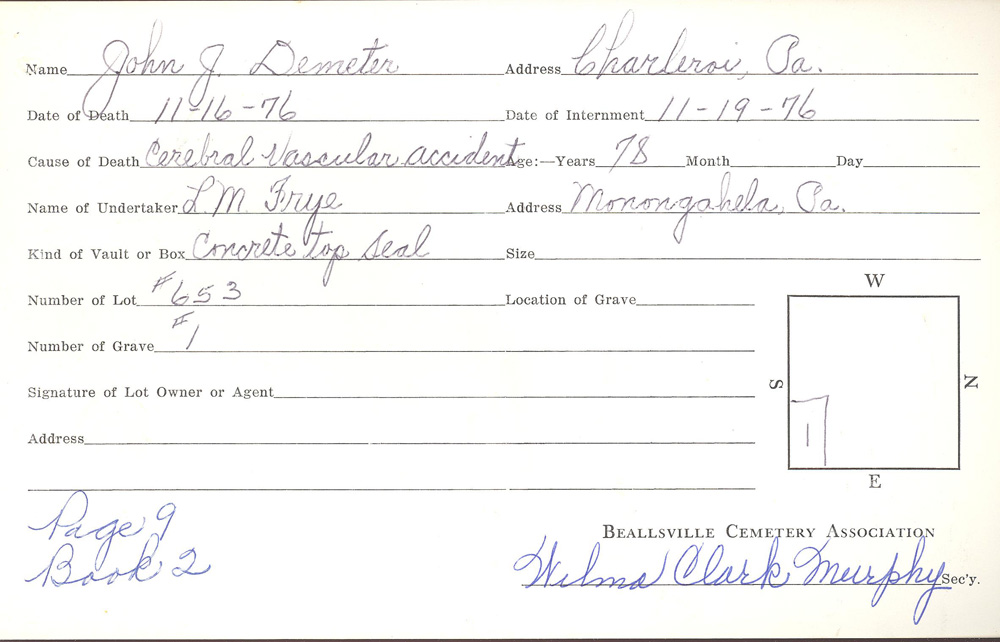 Name John J. Demeter Address Charleroi, Pa.
Date of Death 11-16-76 Date of Internment 11-19-76
Cause of Death Cerebral Vascular accident Age:—Years 78 Month Day
Name of Undertaker L.M. Frye Address Monongahela, Pa.
Kind of Vault or Box Concrete top seal Size
Number of Lot #653 Location of Grave
Number of Grave #1
Signature of Lot Owner or Agent
Address
W
S N
1
E
Page 9
Book 2
BEALLSVILLE CEMETERY ASSOCIATION
Wilma Clark Murphy Sec'y.